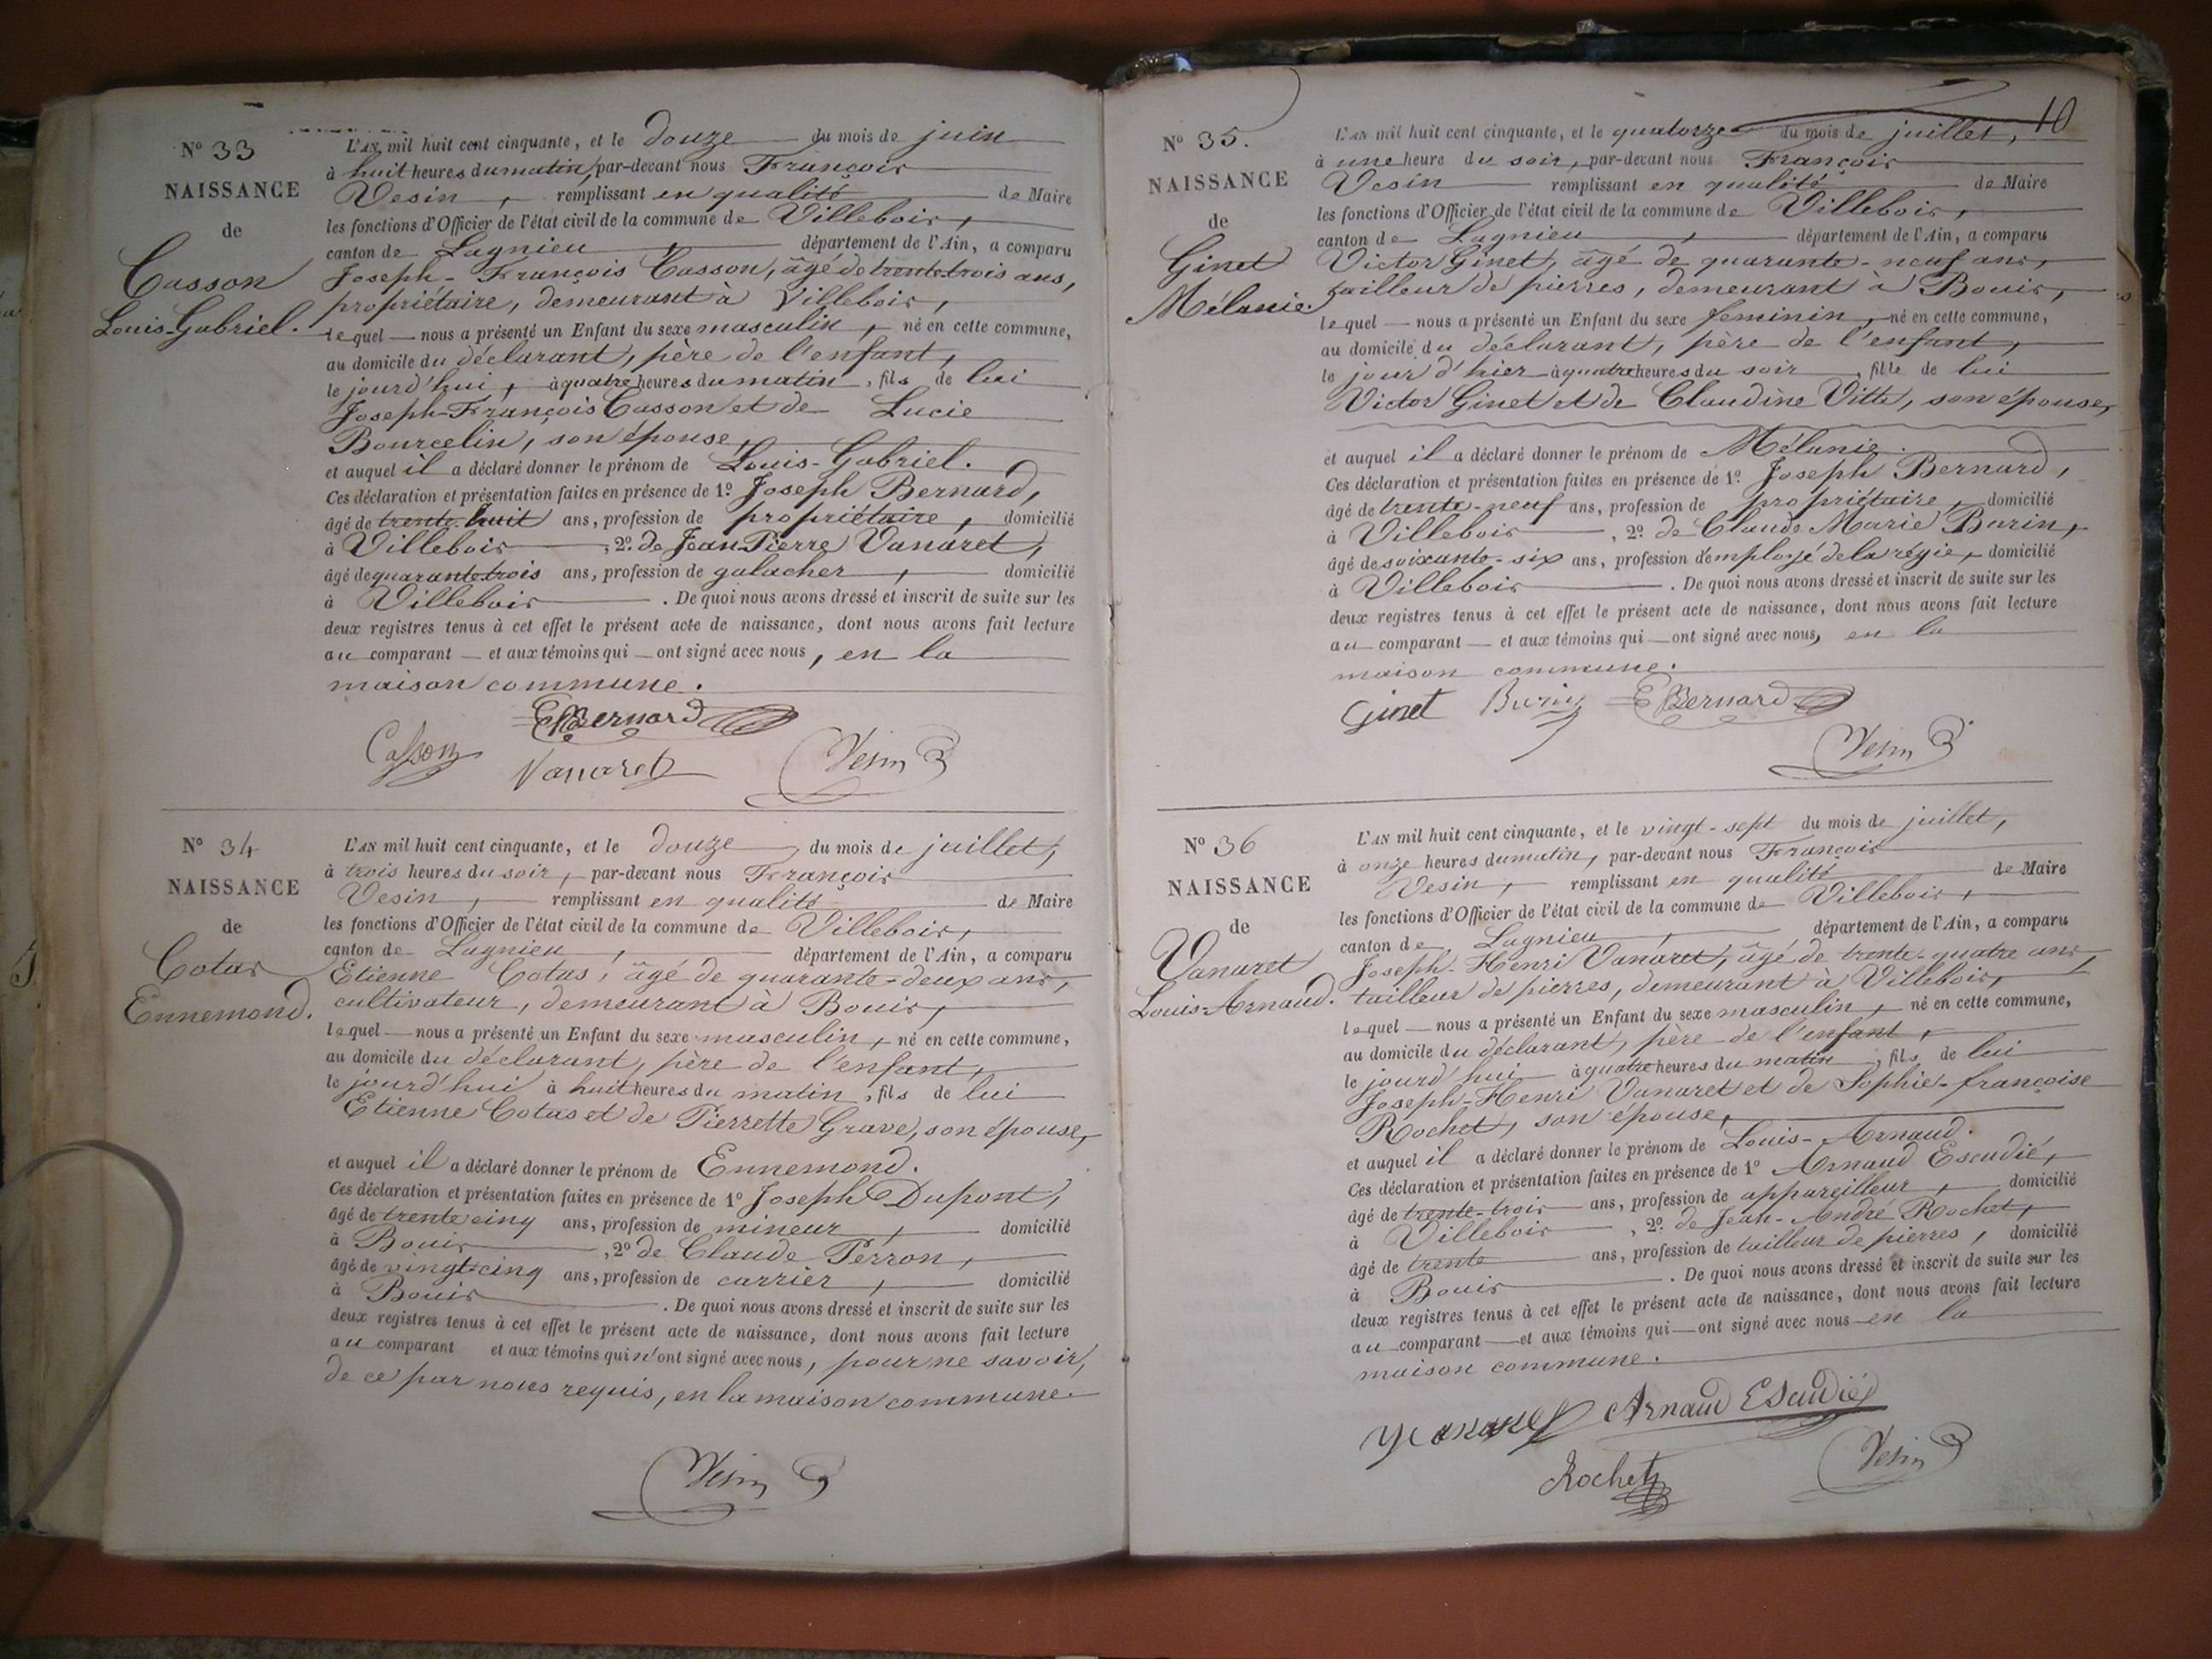 N° 33
NAISSANCE
de
Casson
Louis-Gabriel.
L'AN mil huit cent cinquante, et le douze du mois de juin
à huit heures du matin, par-devant nous François
Vesin, remplissant en qualité de Maire
les fonctions d'Officier de l'état civil de la commune de Villebois,
canton de Lagnieu, département de l'Ain, a comparu
Joseph-François Casson, âgé de trente-trois ans,
propriétaire, demeurant à Villebois,
lequel nous a présenté un Enfant du sexe masculin, né en cette commune,
au domicile du déclarant, père de l'enfant,
le jourd'hui, à quatre heures du matin, fils de lui
Joseph-François Casson et de Lucie
Bourcelin, son épouse,
et auquel il a déclaré donner le prénom de Louis-Gabriel.
Ces déclaration et présentation faites en présence de 1° Joseph Bernard,
âgé de trente-huit ans, profession de propriétaire, domicilié
à Villebois, 2° de Jean-Pierre Vanaret,
âgé de quarante-trois ans, profession de galocher, domicilié
à Villebois. De quoi nous avons dressé et inscrit de suite sur les
deux registres tenus à cet effet le présent acte de naissance, dont nous avons fait lecture
au comparant et aux témoins qui ont signé avec nous, en la
maison commune.
Bernard
Casson Vanaret Vesin
N° 34
NAISSANCE
de
Cotas
Ennemond.
L'AN mil huit cent cinquante, et le douze du mois de juillet,
à trois heures du soir, par-devant nous François
Vesin, remplissant en qualité de Maire
les fonctions d'Officier de l'état civil de la commune de Villebois,
canton de Lagnieu, département de l'Ain, a comparu
Etienne Cotas, âgé de quarante-deux ans,
cultivateur, demeurant à Bouis,
lequel nous a présenté un Enfant du sexe masculin, né en cette commune,
au domicile du déclarant, père de l'enfant,
le jourd'hui à huit heures du matin, fils de lui
Etienne Cotas et de Pierrette Grave, son épouse,
et auquel il a déclaré donner le prénom de Ennemond.
Ces déclaration et présentation faites en présence de 1° Joseph Dupont,
âgé de trente cinq ans, profession de mineur, domicilié
à Bouis, 2° de Claude Perron,
âgé de vingt-cinq ans, profession de carrier, domicilié
à Bouis. De quoi nous avons dressé et inscrit de suite sur les
deux registres tenus à cet effet le présent acte de naissance, dont nous avons fait lecture
au comparant et aux témoins qui n'ont signé avec nous, pour ne savoir,
de ce par nous requis, en la maison commune.
Vesin
10
N° 35.
NAISSANCE
de
Ginet
Mélanie.
L'AN mil huit cent cinquante, et le quatorze du mois de juillet,
à une heure du soir, par-devant nous François
Vesin remplissant en qualité de Maire
les fonctions d'Officier de l'état civil de la commune de Villebois,
canton de Lagnieu, département de l'Ain, a comparu
Victor Ginet, âgé de quarante-neuf ans,
tailleur de pierres, demeurant à Bouis,
lequel nous a présenté un Enfant du sexe feminin, né en cette commune,
au domicile du déclarant, père de l'enfant,
le jour d'hier à quatre heures du soir, fille de lui
Victor Ginet et de Claudine Vitte, son épouse,
et auquel il a déclaré donner le prénom de Mélanie.
Ces déclaration et présentation faites en présence de 1° Joseph Bernard,
âgé de trente-neuf ans, profession de propriétaire, domicilié
à Villebois, 2° de Claude Marie Burin,
âgé de soixante-six ans, profession d'employé de la régie, domicilié
à Villebois. De quoi nous avons dressé et inscrit de suite sur les
deux registres tenus à cet effet le présent acte de naissance, dont nous avons fait lecture
au comparant et aux témoins qui ont signé avec nous, en la
maison commune.
Ginet Burin Bernard
Vesin
N° 36
NAISSANCE
de
Vanaret
Louis-Arnaud.
L'AN mil huit cent cinquante, et le vingt-sept du mois de juillet,
à onze heures du matin, par-devant nous François
Vesin, remplissant en qualité de Maire
les fonctions d'Officier de l'état civil de la commune de Villebois,
canton de Lagnieu, département de l'Ain, a comparu
Joseph-Henri Vanaret, âgé de trente-quatre ans,
tailleur de pierres, demeurant à Villebois,
lequel nous a présenté un Enfant du sexe masculin, né en cette commune,
au domicile du déclarant, père de l'enfant,
le jourd'hui à quatre heures du matin, fils de lui
Joseph-Henri Vanaret et de Sophie-françoise
Rochet, son épouse,
et auquel il a déclaré donner le prénom de Louis-Arnaud.
Ces déclaration et présentation faites en présence de 1° Arnaud Escudié,
âgé de trente-trois ans, profession de appareilleur, domicilié
à Villebois, 2° de Jean-André Rochet,
âgé de trente ans, profession de tailleur de pierres, domicilié
à Bouis. De quoi nous avons dressé et inscrit de suite sur les
deux registres tenus à cet effet le présent acte de naissance, dont nous avons fait lecture
au comparant et aux témoins qui ont signé avec nous en la
maison commune.
Arnaud Escudié
Rochet Vesin